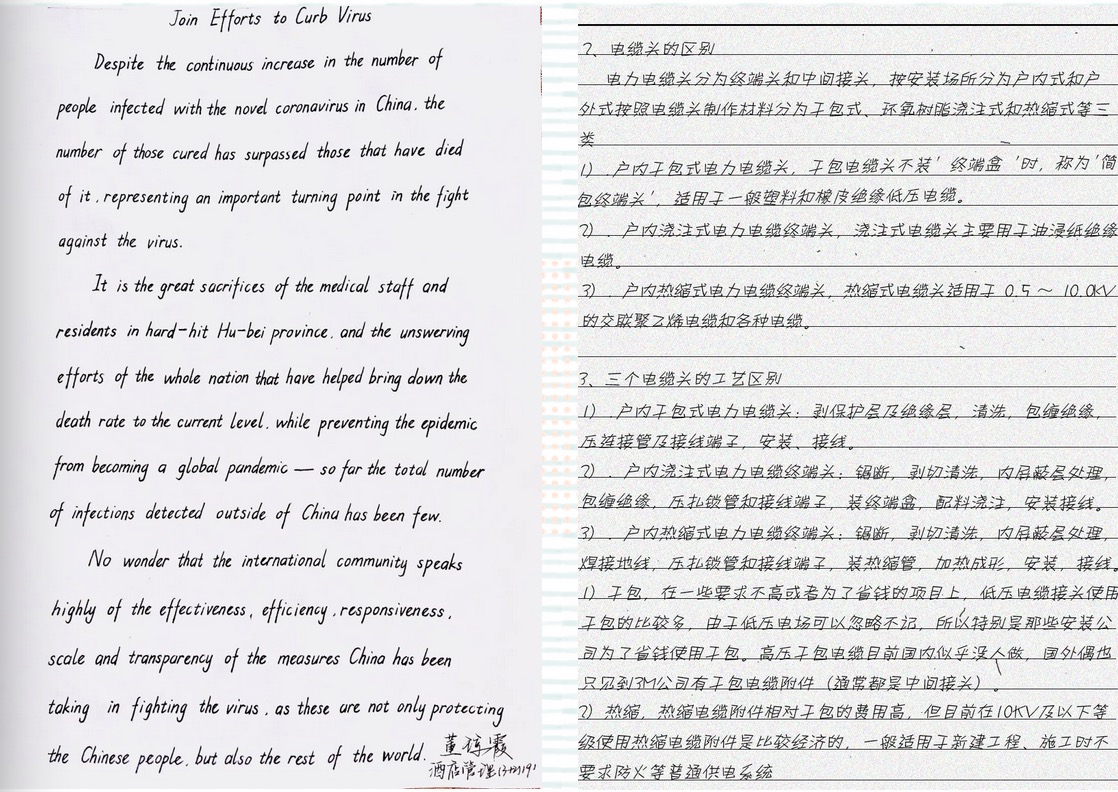 Join Efforts to Curb Virus
Despite the continuous increase in the number of
people infected with the novel coronavirus in China, the
number of those cured has surpassed those that have died
of it, representing an important turning point in the fight
against the virus.
It is the great sacrifices of the medical staff and
residents in hard-hit Hu-bei province, and the unswerving
efforts of the whole nation that have helped bring down the
death rate to the current level, while preventing the epidemic
from becoming a global pandemic — so far the total number
of infections detected outside of China has been few.
No wonder that the international community speaks
highly of the effectiveness, efficiency, responsiveness,
scale and transparency of the measures China has been
taking in fighting the virus, as these are not only protecting
the Chinese people, but also the rest of the world.
酒店管理
2、电缆头的区别
电力电缆头分为终端头和中间接头,按安装场所分为户内式和户
外式按照电缆头制作材料分为干包式、环氧树脂浇注式和热缩式等三
类
1).户内干包式电力电缆头,干包电缆头不装'终端盒'时,称为'简
包终端头',适用于一般塑料和橡皮绝缘低压电缆。
2).户内浇注式电力电缆终端头,浇注式电缆头主要用于油浸纸绝缘
电缆。
3) 户内热缩式电力电缆终端头,热缩式电缆头适用于 0.5～10.0KV
的交联聚乙烯电缆和各种电缆。
3、三个电缆头的工艺区别
1).户内干包式电力电缆头:剥保护层及绝缘层,清洗,包缠绝缘,
压连接管及接线端子,安装、接线。
2).户内浇注式电力电缆终端头:锯断,剥切清洗,内屏蔽层处理,
包缠绝缘,压扎锁管和接线端子,装终端盒,配料浇注,安装接线。
3).户内热缩式电力电缆终端头:锯断,剥切清洗,内屏蔽层处理,
焊接地线,压扎锁管和接线端子,装热缩管,加热成形,安装,接线。
1)干包,在一些要求不高或者为了省钱的项目上,低压电缆接头使用
干包的比较多,由于低压电场可以忽略不记,所以特别是那些安装公
司为了省钱使用干包。高压干包电缆目前国内似乎没人做,国外偶也
只见到3M公司有干包电缆附件(通常都是中间接头)。
2)热缩,热缩电缆附件相对干包的费用高,但目前在10KV及以下等
级使用热缩电缆附件是比较经济的,一般适用于新建工程、施工时不
要求防火等普通供电系统